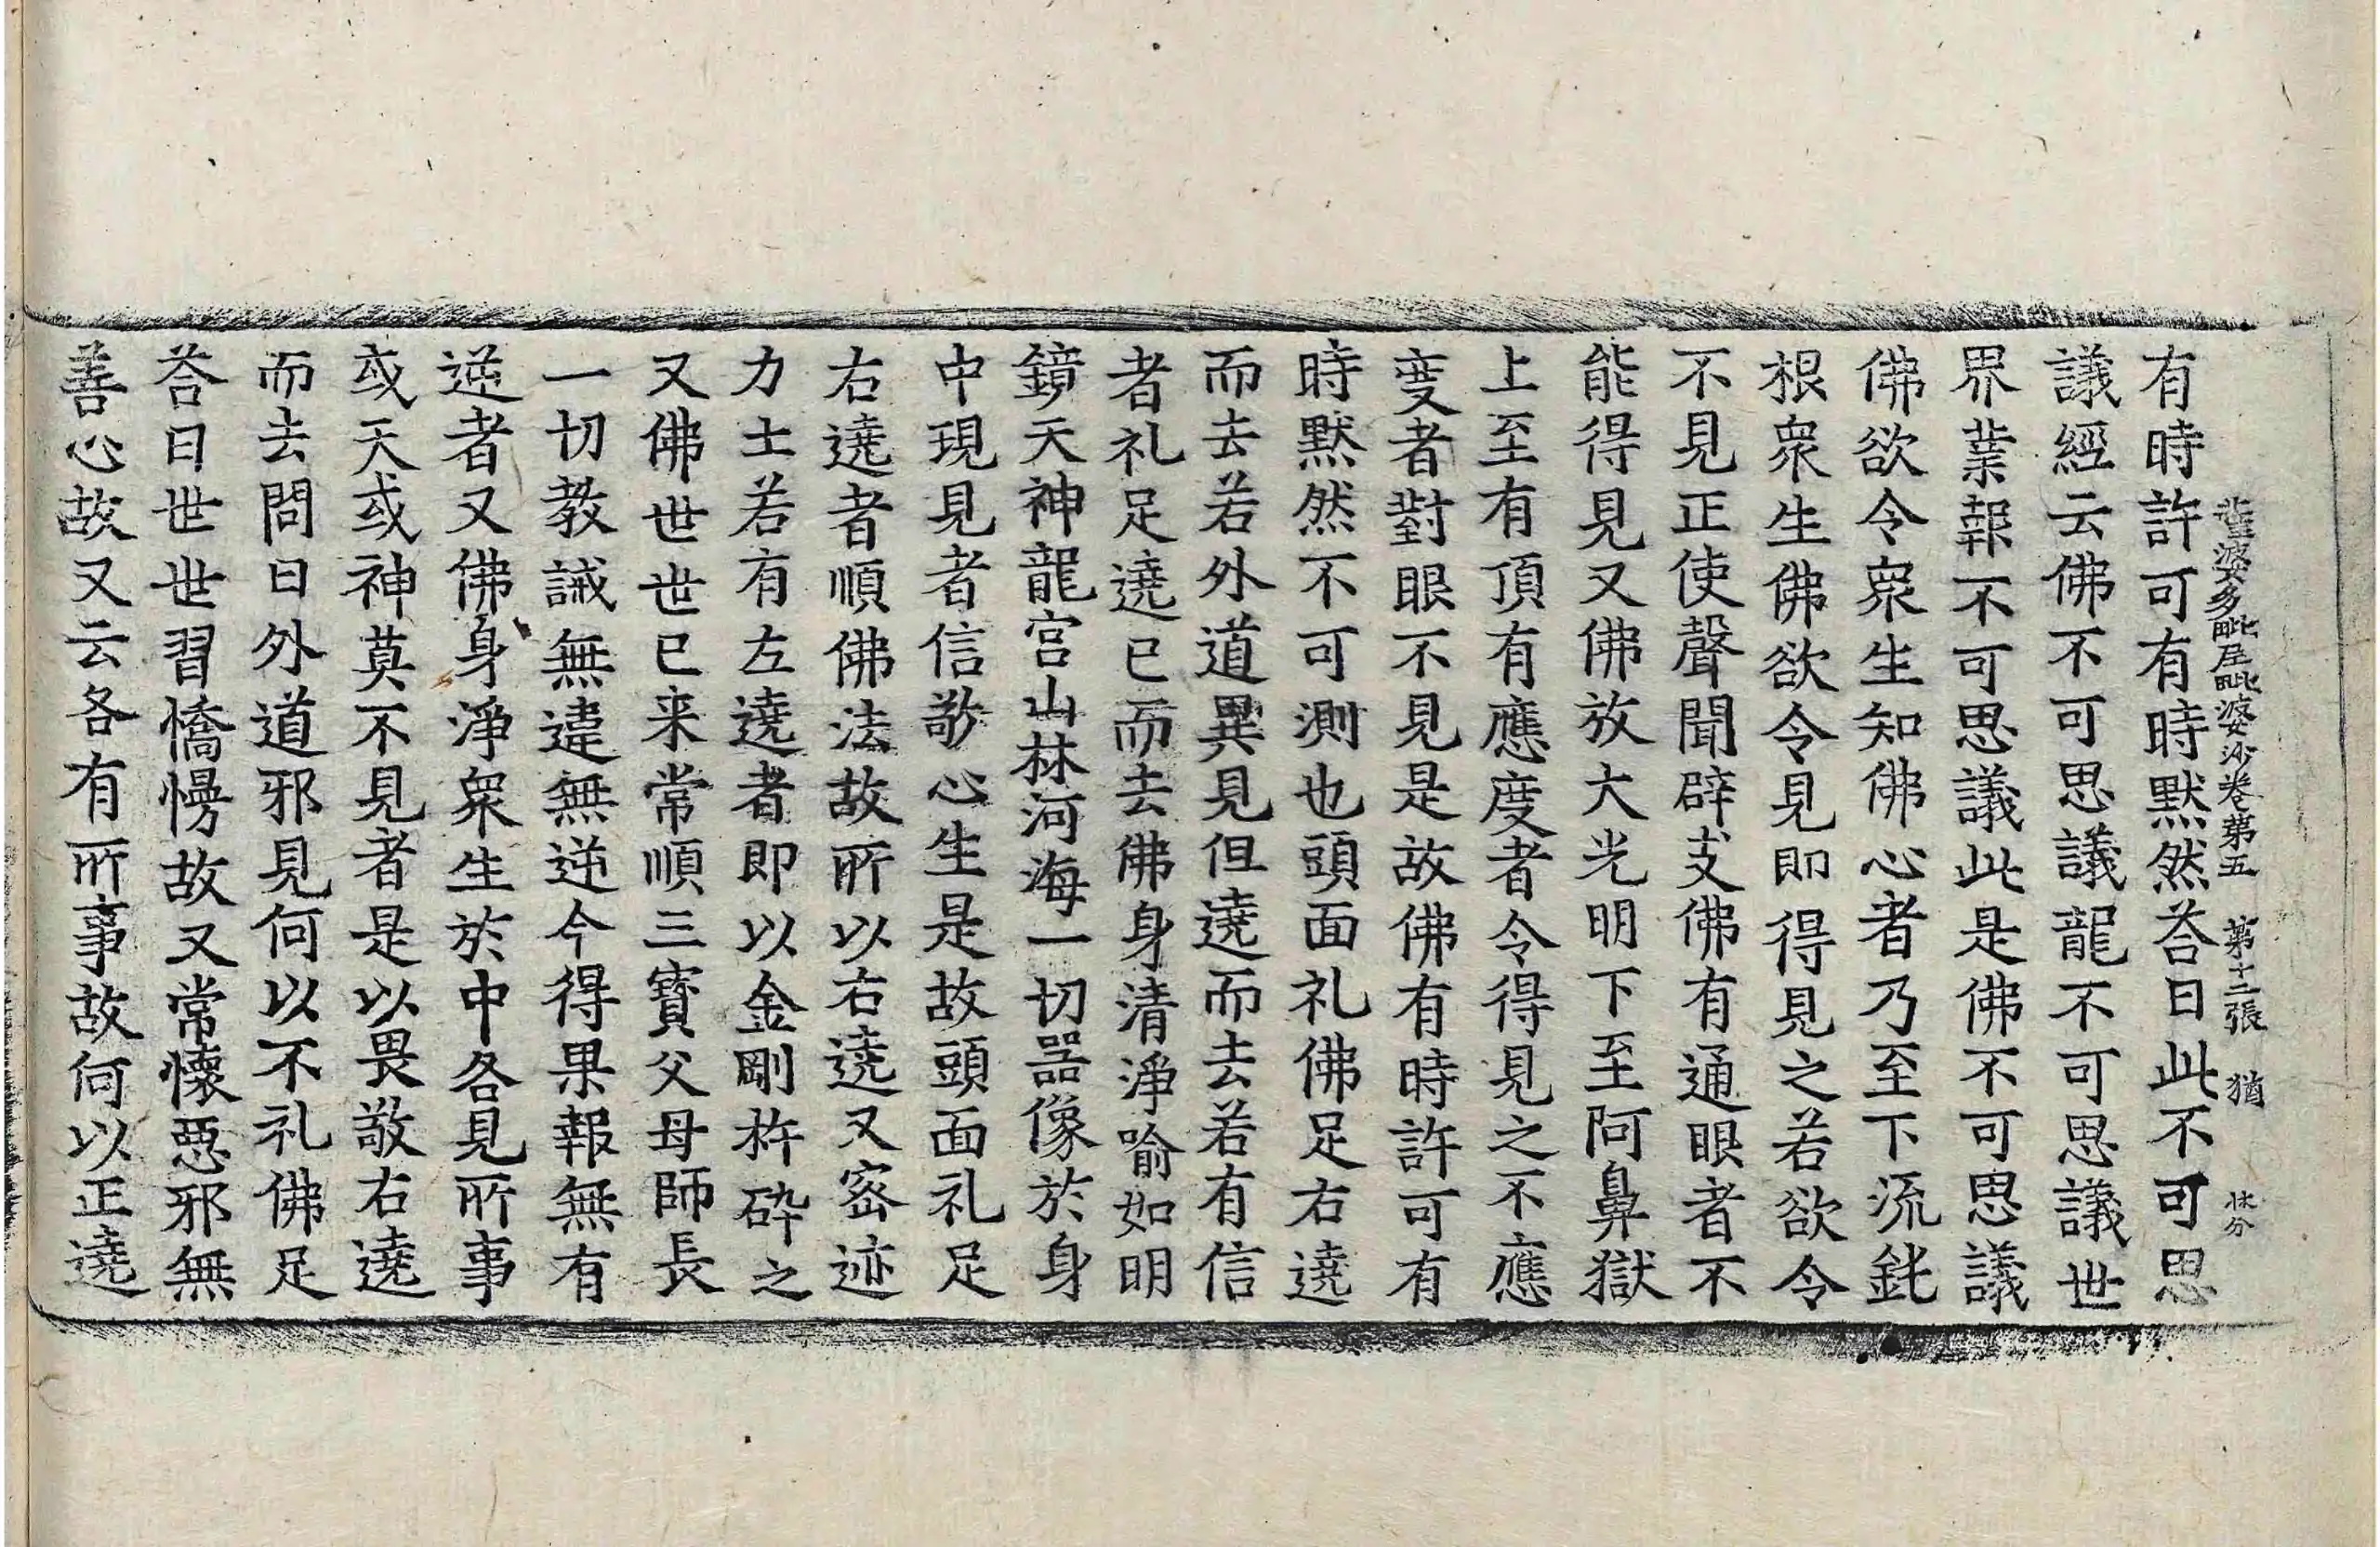 薩婆多毗尼毗婆沙卷第五　第十二張　猶
有時許可有時默然荅曰此不可思
議經云佛不可思議龍不可思議世
界業報不可思議此是佛不可思議
佛欲令衆生知佛心者乃至下流鈍
根衆生佛欲令見即得見之若欲令
不見正使聲聞辟支佛有通眼者不
能得見又佛放大光明下至阿鼻獄
上至有頂有應度者令得見之不應
度者對眼不見是故佛有時許可有
時默然不可測也頭面礼佛足右遶
而去若外道異見但遶而去若有信
者礼足遶已而去佛身清淨喻如明
鏡天神龍宮山林河海一切噐像於身
中現見者信敬心生是故頭面礼足
右遶者順佛法故所以右遶又宻迹
力士若有左遶者即以金剛杵碎之
又佛世世已来常順三寶父母師長
一切教誡無違無逆今得果報無有
逆者又佛身淨衆生於中各見所事
或天或神莫不見者是以畏敬右遶
而去問曰外道邪見何以不礼佛足
荅曰世世習憍慢故又常懷惡邪無
善心故又云各有所事故何以正遶